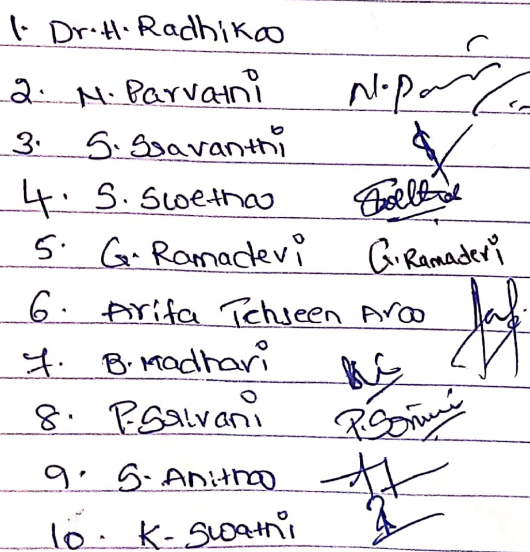 1. Dr. H. Radhika
2. N. Parvathi N. Par
3. S. Sravanthi
4. S. Swetha
5. G. Ramadevi G. Ramadevi
6. Arifa Tehseen Ara
7. B. Madhavi
8. P. Srivani
9. S. Anitha
10. K. Swathi